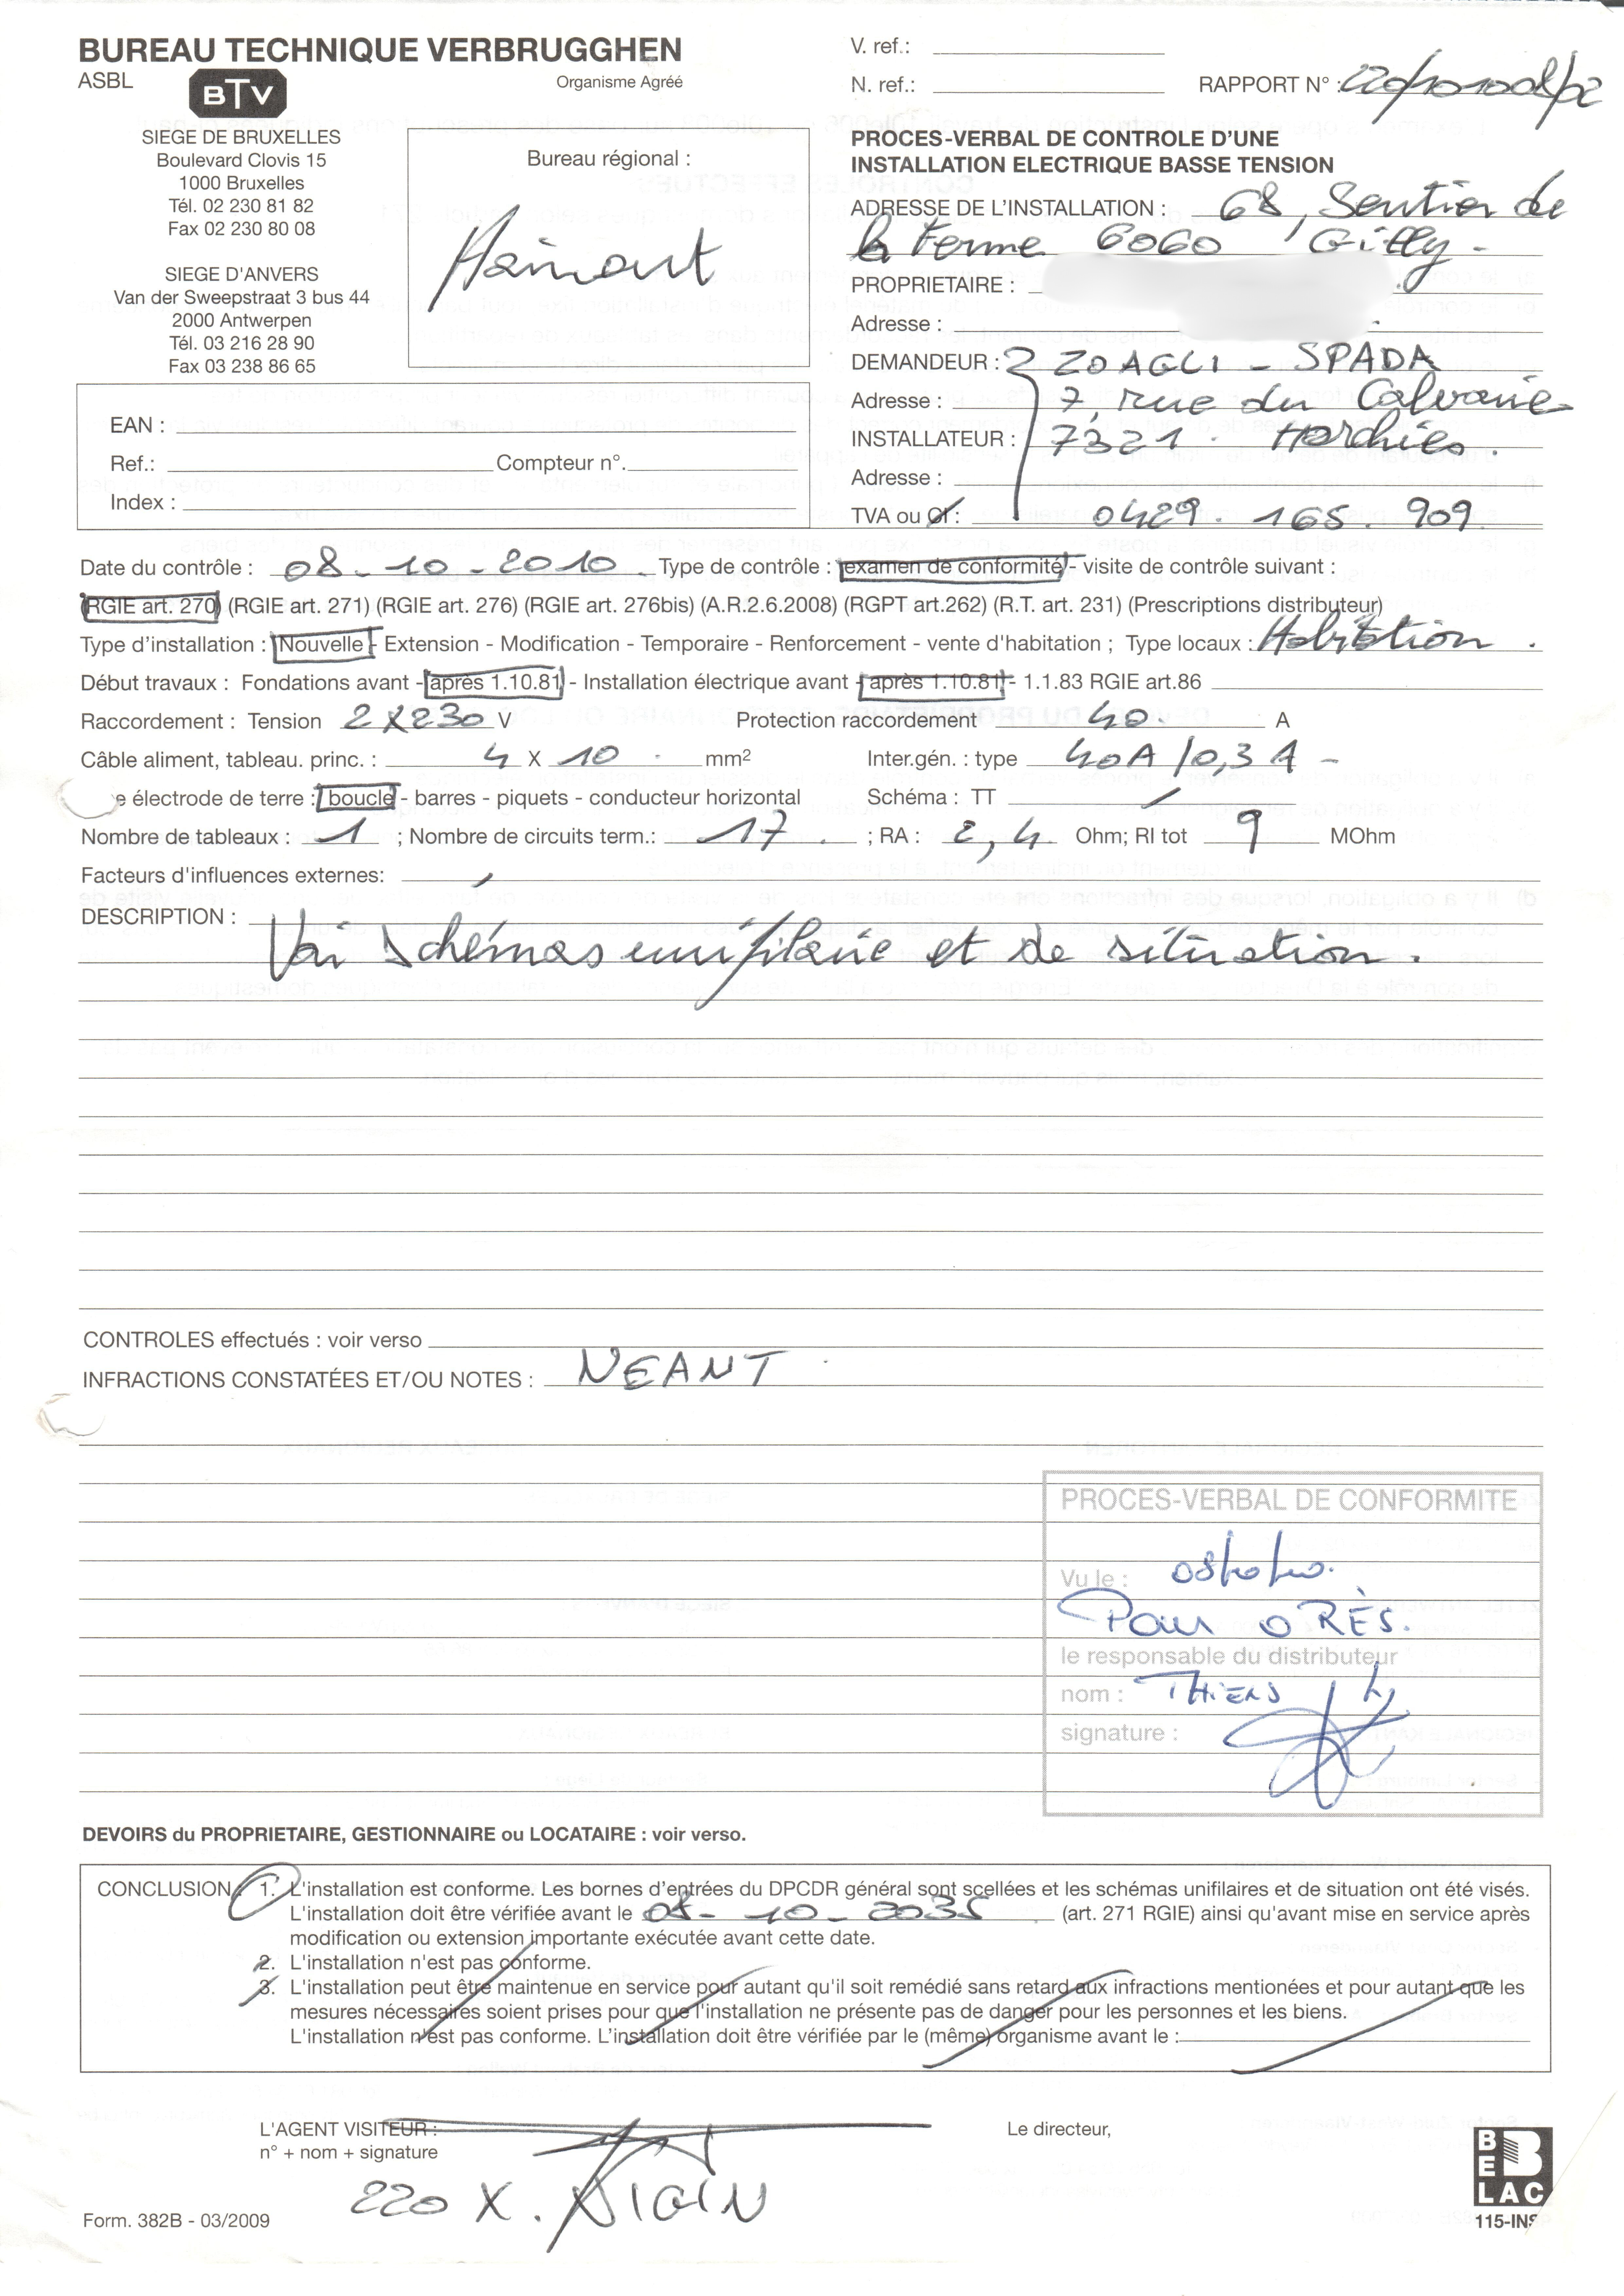 BUREAU TECHNIQUE VERBRUGGHEN
ASBL
BTV
Organisme Agréé
SIEGE DE BRUXELLES
Boulevard Clovis 15
1000 Bruxelles
Tél. 02 230 81 82
Fax 02 230 80 08
SIEGE D'ANVERS
Van der Sweepstraat 3 bus 44
2000 Antwerpen
Tél. 03 216 28 90
Fax 03 238 86 65
Bureau régional :
Hainaut
EAN :
Ref.: Compteur n°.
Index :
V. ref.:
N. ref.: RAPPORT N° :
PROCES-VERBAL DE CONTROLE D'UNE
INSTALLATION ELECTRIQUE BASSE TENSION
ADRESSE DE L'INSTALLATION : 68, Sentier de
la Ferme 6060 Gilly -
PROPRIETAIRE :
Adresse :
DEMANDEUR : ZOAGLI - SPADA
Adresse : 7, rue du Calvaire
INSTALLATEUR : 7321. Harchies.
Adresse :
TVA ou CI : 0429. 165. 909.
Date du contrôle : 08 - 10 - 2010. Type de contrôle : examen de conformité - visite de contrôle suivant :
(RGIE art. 270) (RGIE art. 271) (RGIE art. 276) (RGIE art. 276bis) (A.R.2.6.2008) (RGPT art.262) (R.T. art. 231) (Prescriptions distributeur)
Type d'installation : Nouvelle - Extension - Modification - Temporaire - Renforcement - vente d'habitation ; Type locaux : Habitation.
Début travaux : Fondations avant - après 1.10.81 - Installation électrique avant - après 1.10.81 - 1.1.83 RGIE art.86
Raccordement : Tension 2X230 V Protection raccordement 40. A
Câble aliment, tableau. princ. : 4 X 10 mm² Inter.gén. : type 40A/0,3A -
e électrode de terre : boucle - barres - piquets - conducteur horizontal Schéma : TT
Nombre de tableaux : 1 ; Nombre de circuits term.: 17. ; RA : 2,4. Ohm; RI tot 9 MOhm
Facteurs d'influences externes:
DESCRIPTION :
Voir schémas unifilaire et de situation.
CONTROLES effectués : voir verso
INFRACTIONS CONSTATÉES ET/OU NOTES : NEANT
PROCES-VERBAL DE CONFORMITE
Vu le : 08/10/10.
Pour ORÈS.
le responsable du distributeur
nom : THIENS
signature :
DEVOIRS du PROPRIETAIRE, GESTIONNAIRE ou LOCATAIRE : voir verso.
CONCLUSION 1. L'installation est conforme. Les bornes d'entrées du DPCDR général sont scellées et les schémas unifilaires et de situation ont été visés.
L'installation doit être vérifiée avant le 08 - 10 - 2035 (art. 271 RGIE) ainsi qu'avant mise en service après
modification ou extension importante exécutée avant cette date.
2. L'installation n'est pas conforme.
3. L'installation peut être maintenue en service pour autant qu'il soit remédié sans retard aux infractions mentionnées et pour autant que les
mesures nécessaires soient prises pour que l'installation ne présente pas de danger pour les personnes et les biens.
L'installation n'est pas conforme. L'installation doit être vérifiée par le (même) organisme avant le :
L'AGENT VISITEUR :
n° + nom + signature
Le directeur,
220 X.
Form. 382B - 03/2009
BELAC
115-INS